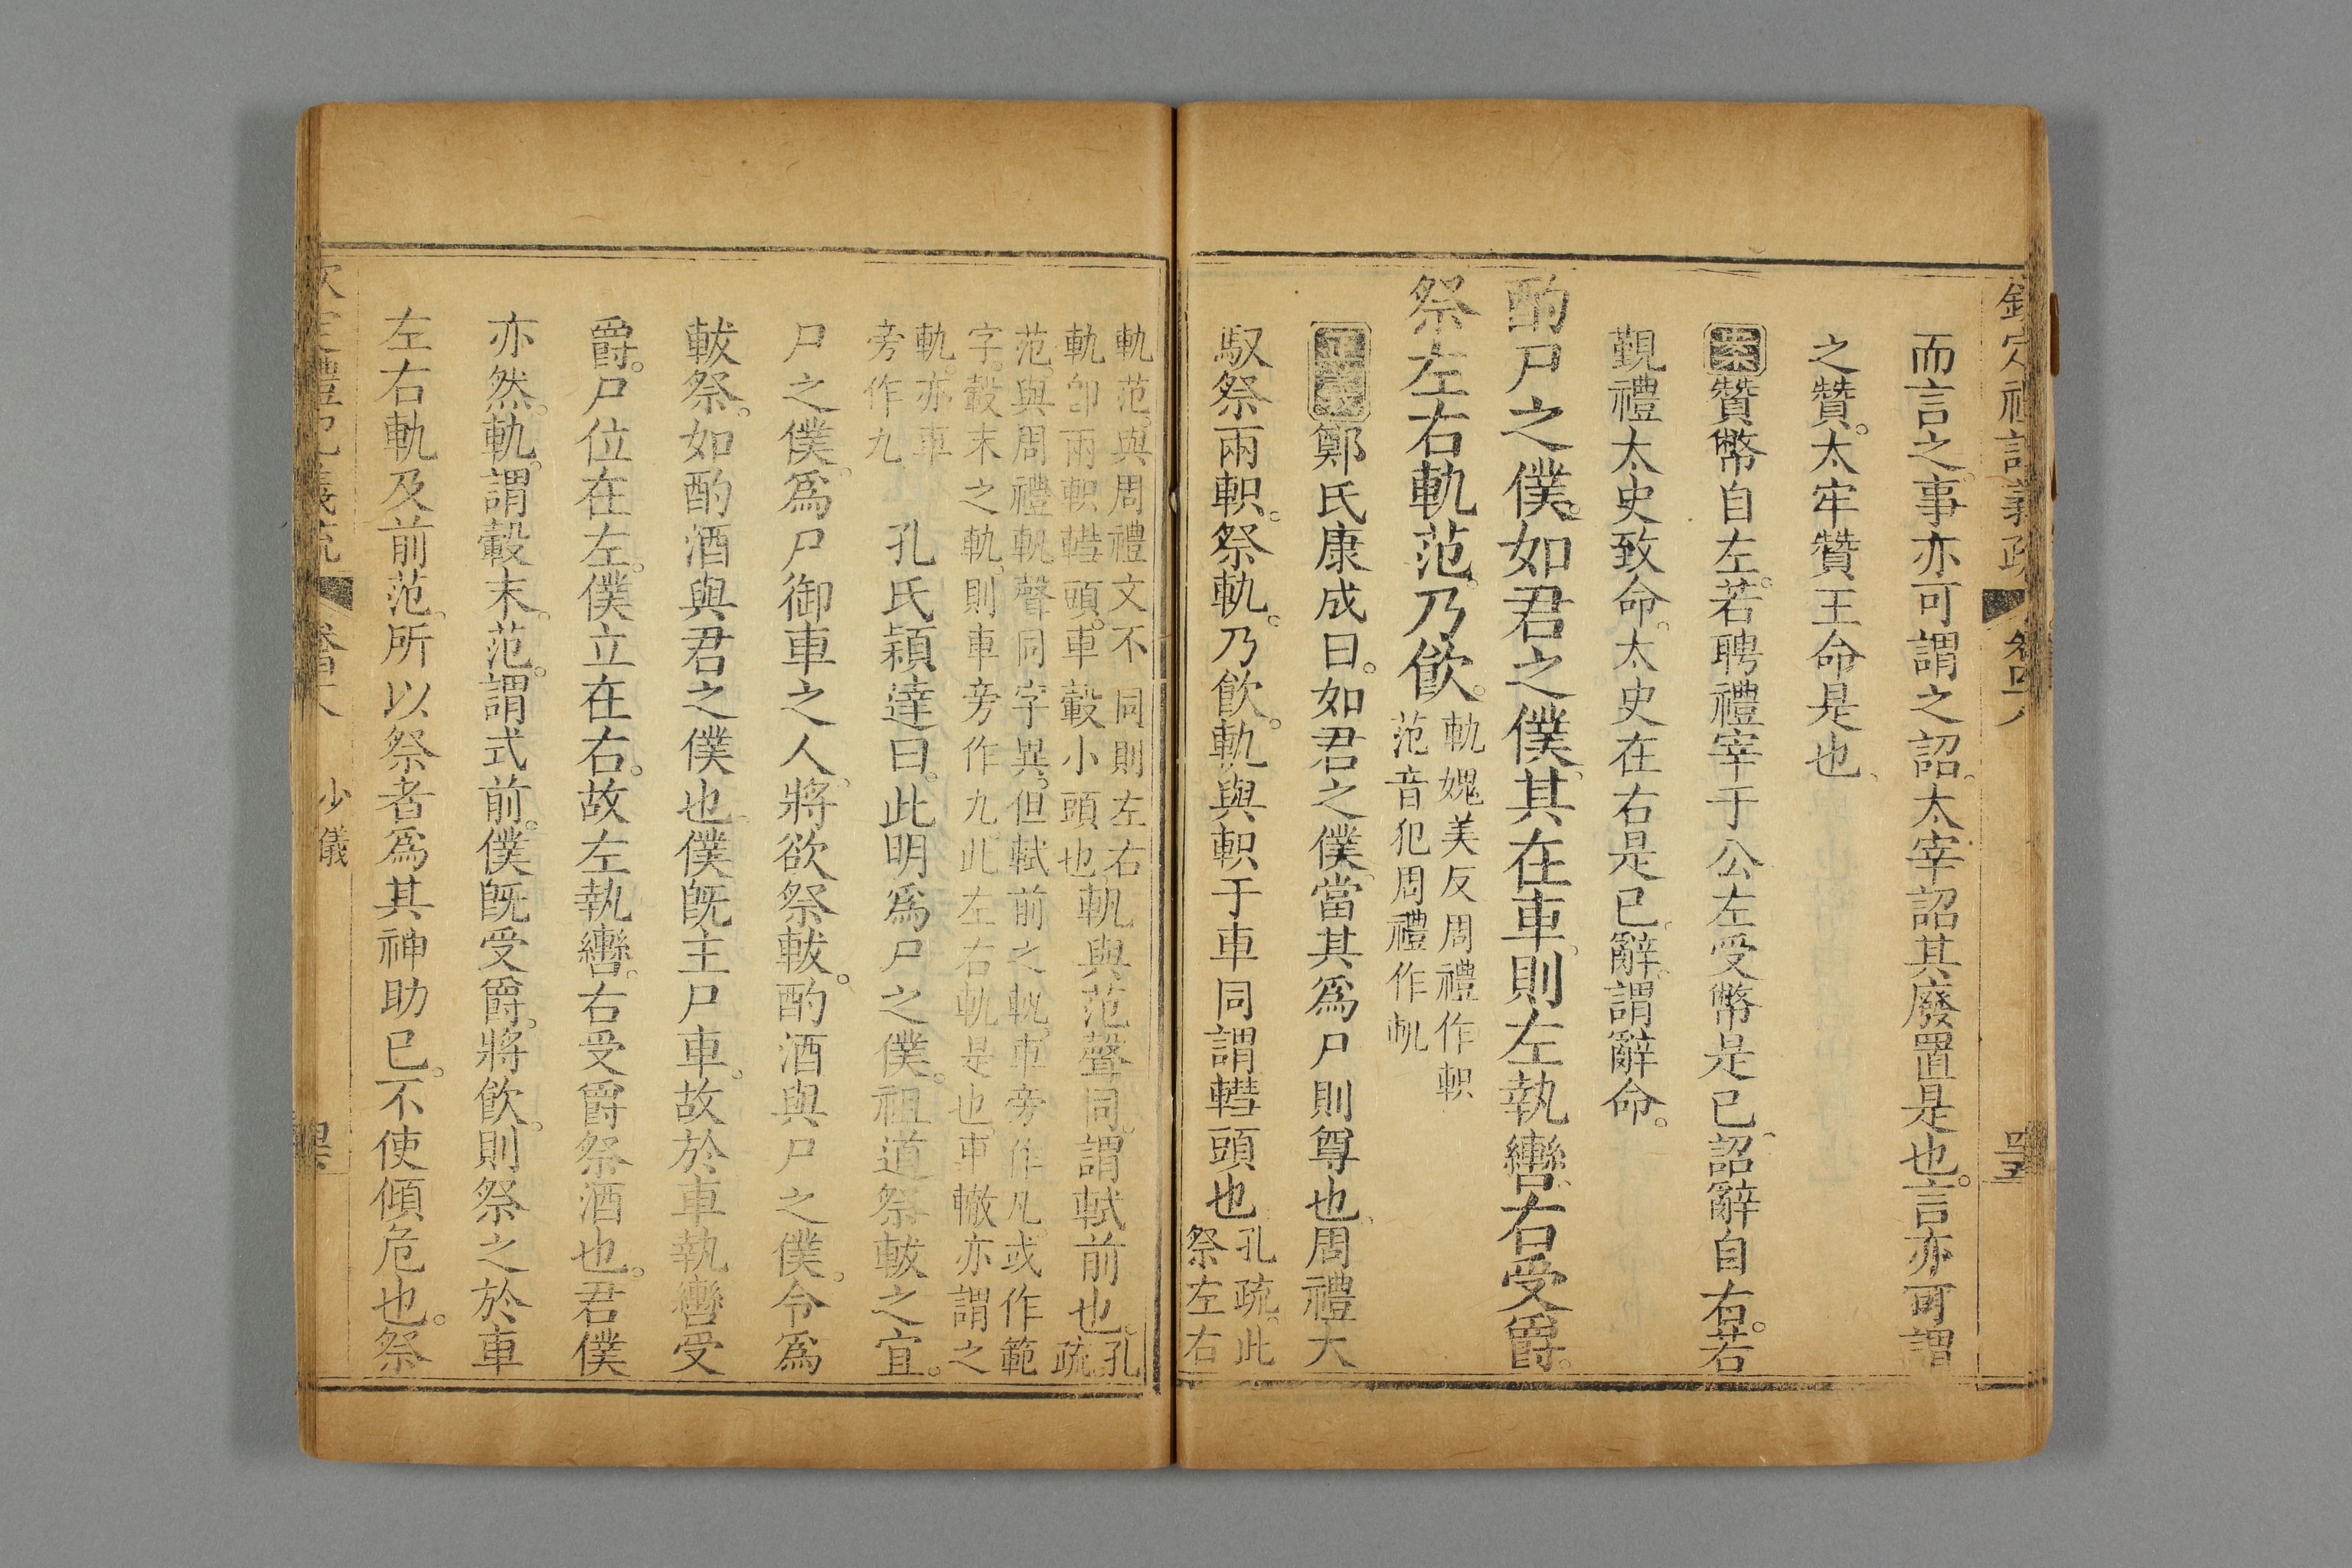 欽定禮記義疏 卷四十八 四五
而言之事亦可謂之詔太宰詔其廢置是也言亦可謂
之贊太牢贊王命是也
案贊幣自左若聘禮宰于公左受幣是已詔辭自右若
覲禮太史致命太史在右是已辭謂辭命
酌尸之僕如君之僕其在車則左執轡右受爵
祭左右軌范乃飲
軌媿美反周禮作軹
范音犯周禮作軓
正義鄭氏康成曰如君之僕當其為尸則尊也周禮大
馭祭兩軹祭軓乃飲軌與軹于車同謂轊頭也
孔疏此
祭左右
軌范與周禮文不同則左右
軌卽兩軹轊頭車轂小頭也
軓與范聲同謂軾前也
孔
疏
范與周禮軓聲同字異但軾前之軓車旁作凡或作範
字轂末之軌則車旁作九此左右軌是也車轍亦謂之
軌亦車
旁作九
孔氏穎達曰此明為尸之僕祖道祭軷之宜
尸之僕為尸御車之人將欲祭軷酌酒與尸之僕令為
軷祭如酌酒與君之僕也僕旣主尸車故於車執轡受
爵尸位在左僕立在右故左執轡右受爵祭酒也君僕
亦然軌謂轂末范謂式前僕旣受爵將飲則祭之於車
左右軌及前范所以祭者為其神助已不使傾危也祭
欽定禮記義疏 卷四十八 少儀